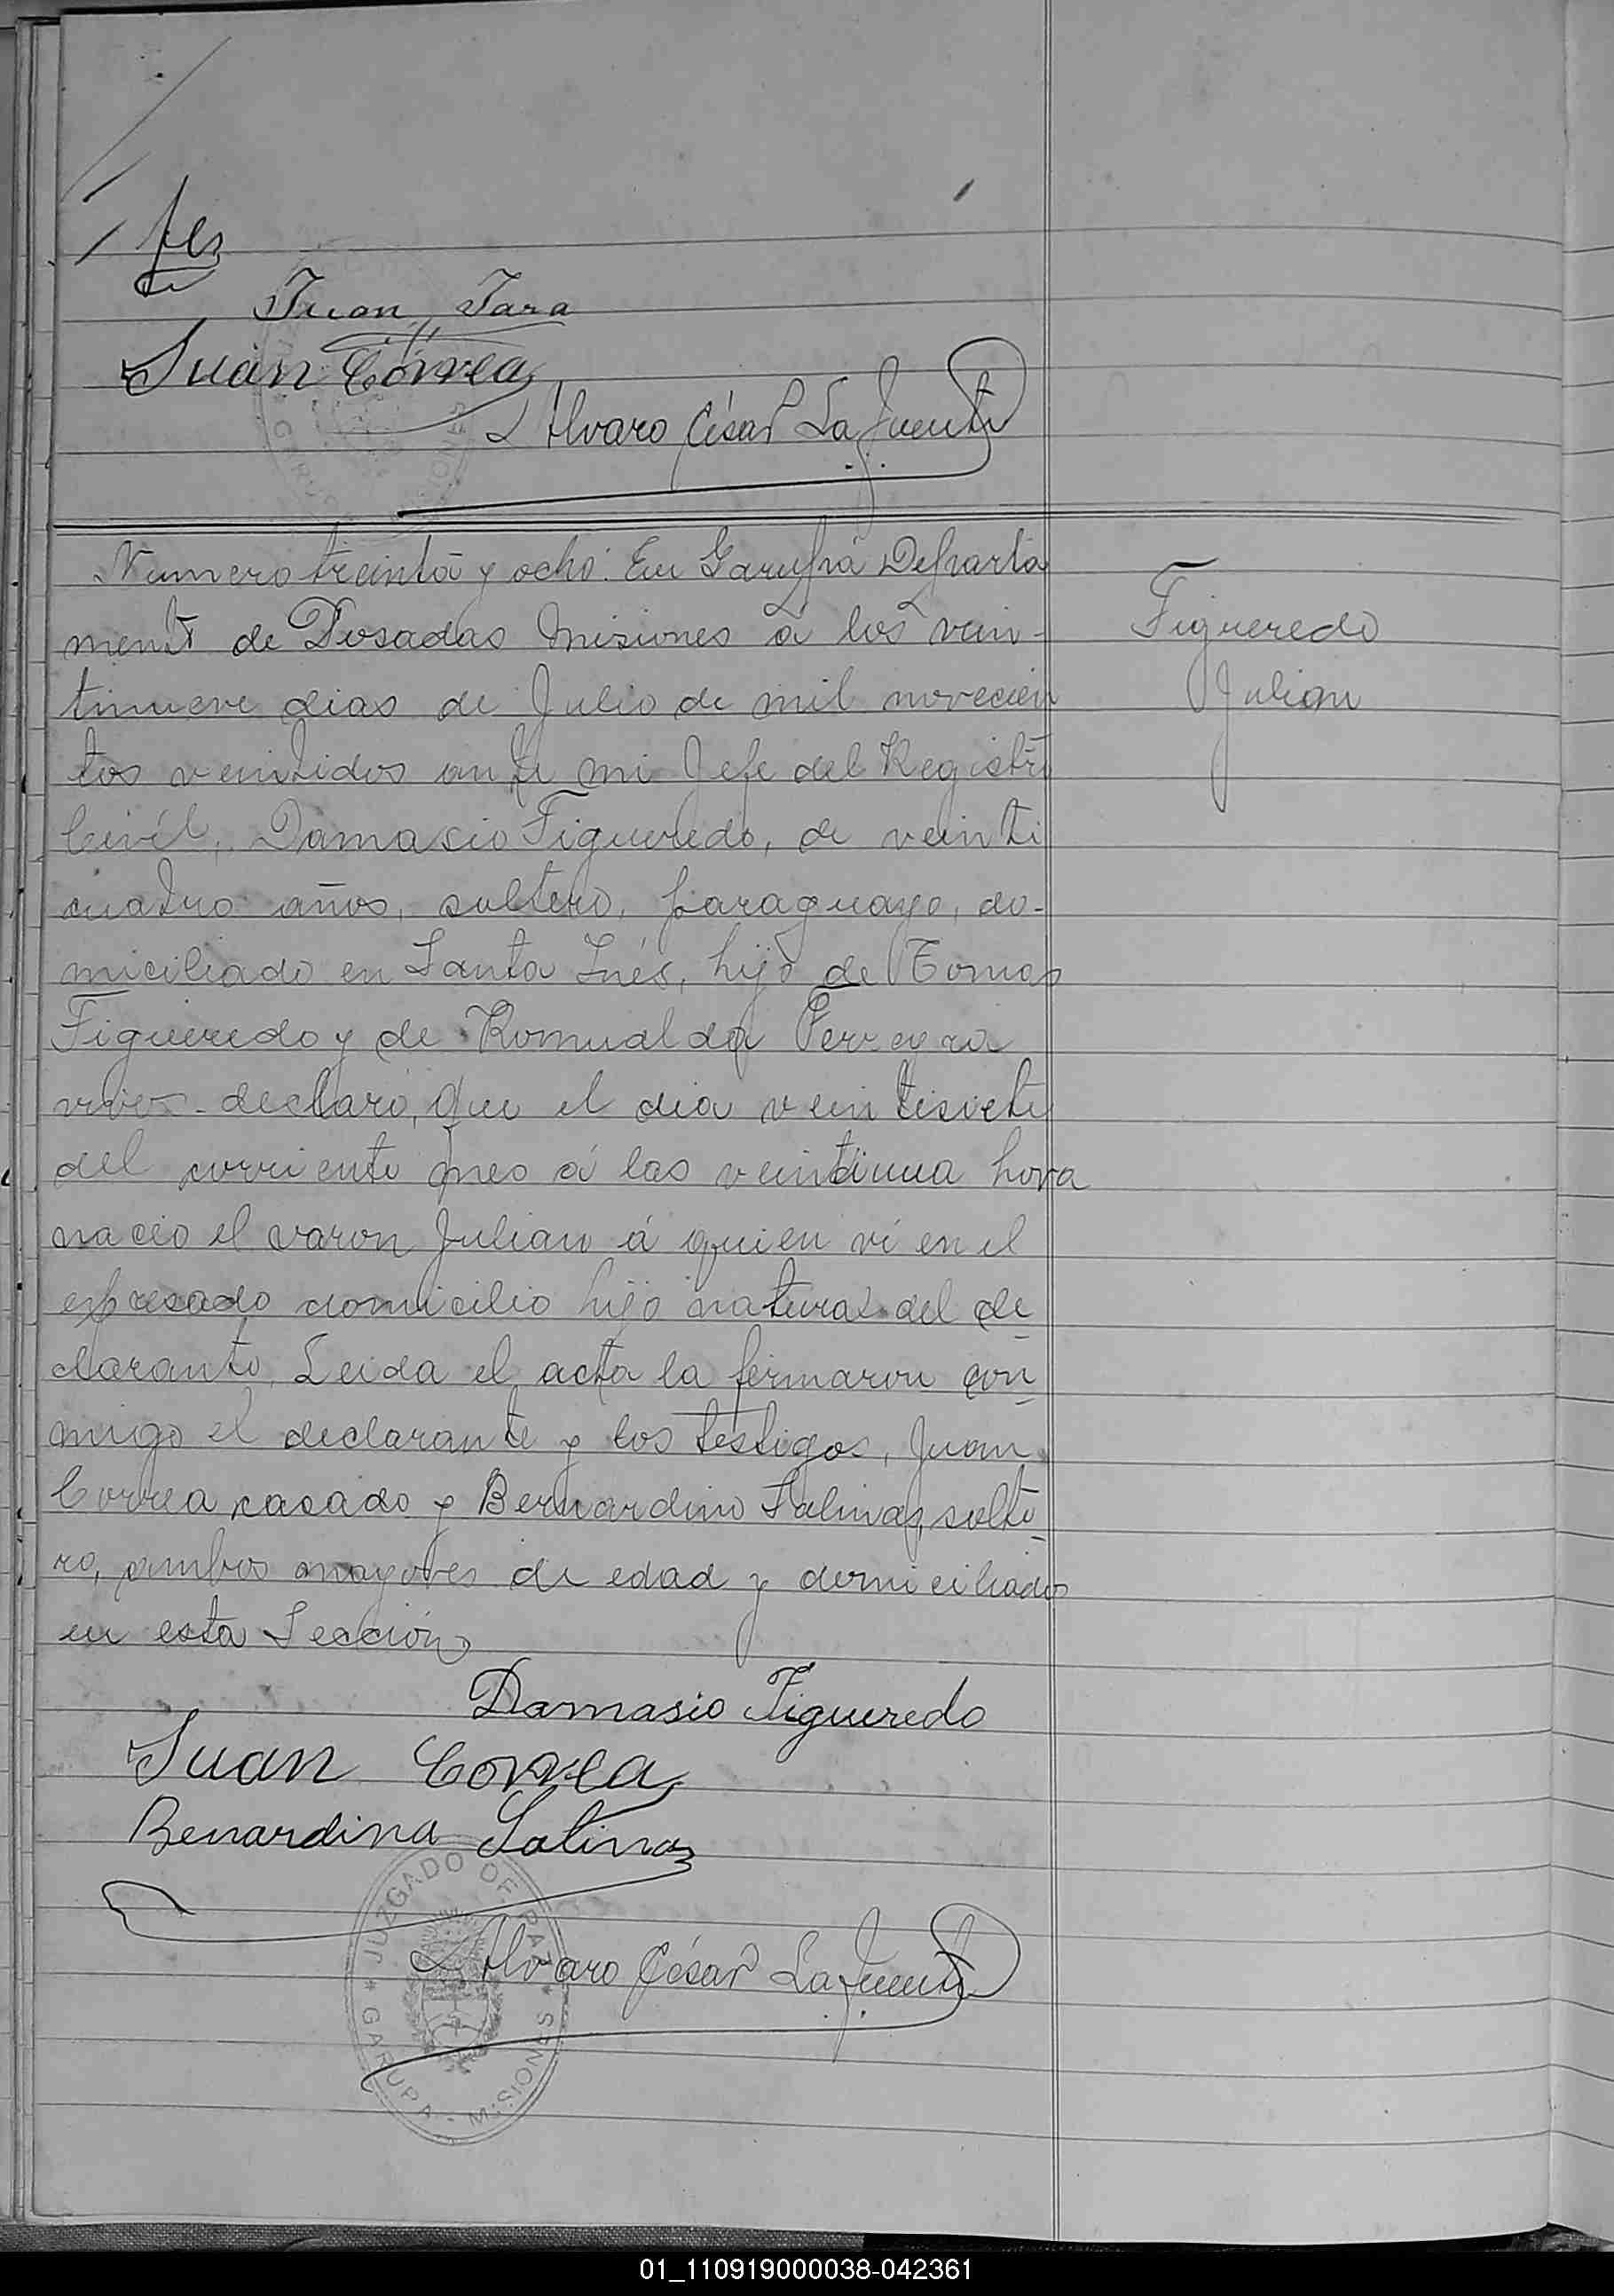 Juan Jara
Juan Correa
Alvaro César Lafuente
Numero treinta y ocho: En Garupá Departa
mento de Posadas Misiones á los vein-
tinueve dias de Julio de mil novecien
tos veintidos ante mi Jefe del Registro
Civil, Damasio Figueredo, de veinti
cuatro años, soltero, paraguayo, do-
miciliado en Santa Inés, hijo de Tomas
Figueredo y de Romualda Ferreyra
declaró, que el dia veintisiete
del corriente mes á las veintiuna hora
nacio el varon Julian á quien ví en el
espresado domicilio hijo natural del de
clarante. Leida el acta la firmaron con
migo el declarante y los testigos, Juan
Correa casado y Bernardino Salinas, solte
ro, ambos mayores de edad y domiciliados
en esta Sección
Figueredo
Julian
Damasio Figueredo
Juan Correa
Benardina Salinas
Alvaro César Lafuente
JUZGADO DE PAZ * GARUPA - MISIONES *
01_110919000038-042361